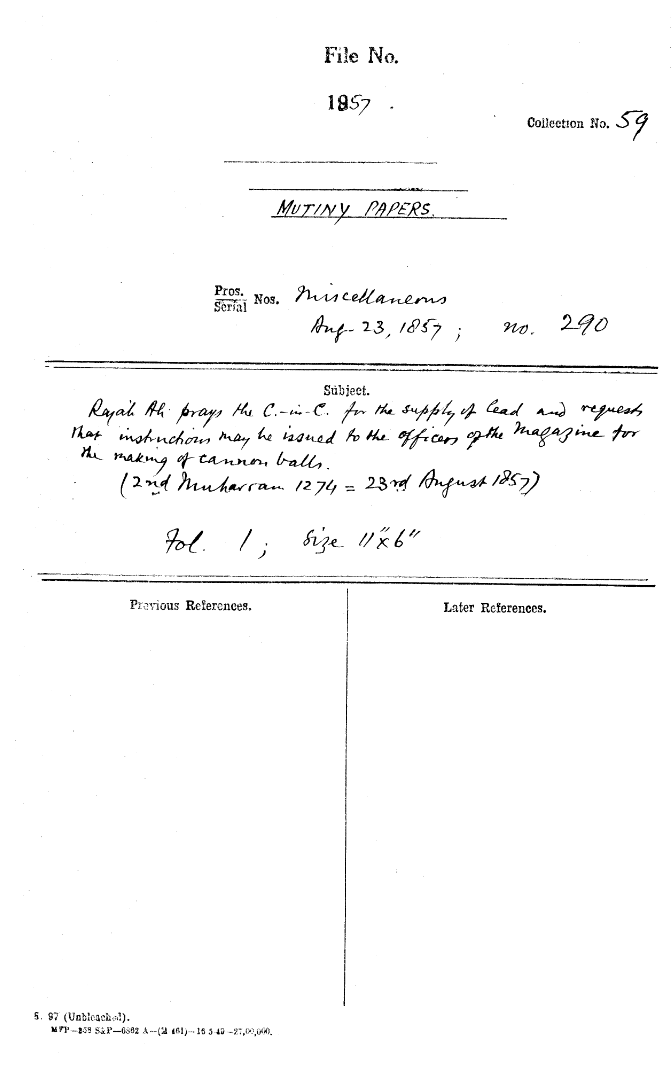 File No.
1857.
Collection No. 59
MUTINY PAPERS.
Pros.
Serial Nos. Miscellaneous
Aug 23, 1857; no. 290
Subject.
Rajab Ali prays the C.-in-C. for the supply of lead and requests
that instructions may be issued to the officers of the Magazine for
the making of cannon balls.
(2nd Muharram 1274 = 23rd August 1857)
Fol. 1; Size 11"x6"
Previous References.
Later References.
S. 97 (Unbleached).